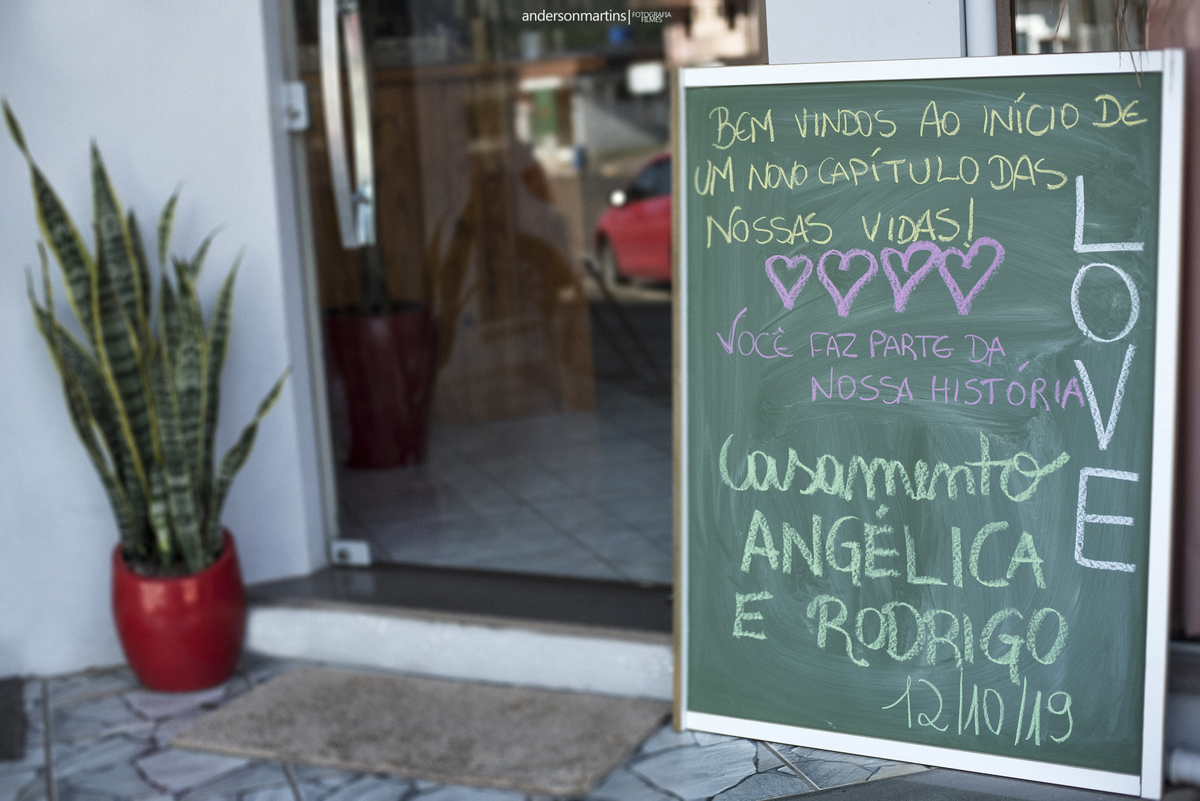 andersonmartins| FOTOGRAFIA FILMES
BEM VINDOS AO INÍCIO DE
UM NOVO CAPÍTULO DAS
NOSSAS VIDAS!
VOCÊ FAZ PARTE DA
NOSSA HISTÓRIA
LOVE
Casamento
ANGÉLICA
E RODRIGO
12/10/19